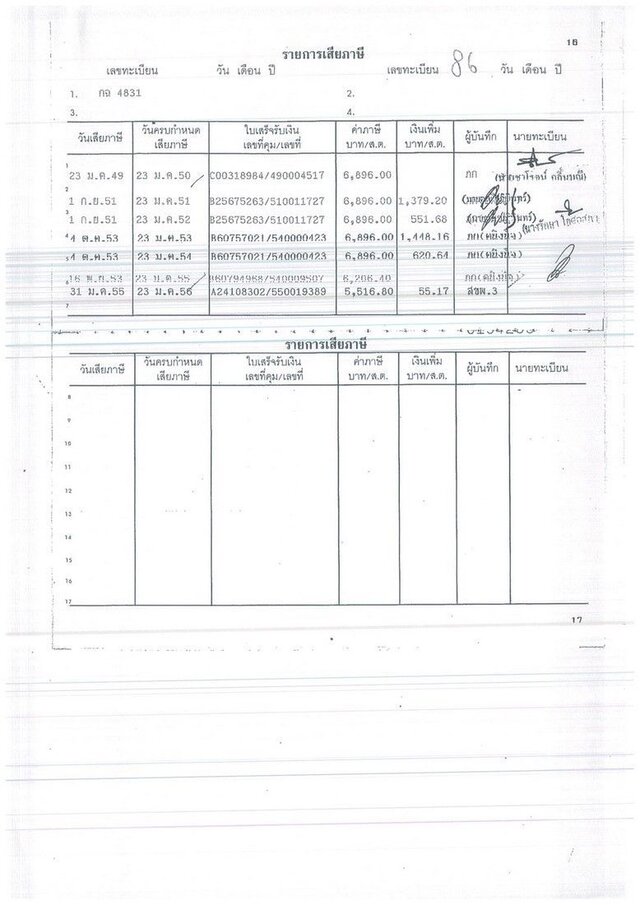 16
รายการเสียภาษี
เลขทะเบียน วัน เดือน ปี เลขทะเบียน 86 วัน เดือน ปี
1. กฉ 4831 2.
3. 4.
วันเสียภาษี วันครบกำหนดเสียภาษี ใบเสร็จรับเงิน เลขที่คุม/เลขที่ ค่าภาษี บาท/ส.ต. เงินเพิ่ม บาท/ส.ต. ผู้บันทึก นายทะเบียน
1
23 ม.ค.49 23 ม.ค.50 C00318984/490004517 6,896.00 ภภ
2
1 ก.ย.51 23 ม.ค.51 B25675263/510011727 6,896.00 1,379.20
3
1 ก.ย.51 23 ม.ค.52 B25675263/510011727 6,896.00 551.68
4 4 ต.ค.53 23 ม.ค.53 B60757021/540000423 6,896.00 1,448.16
5 4 ต.ค.53 23 ม.ค.54 B60757021/540000423 6,896.00 620.64
6 23 ม.ค.55 B60794968/540009507 6,206.40
31 ม.ค.55 23 ม.ค.56 A24108302/550019389 5,516.80 55.17 สขพ.3
7
รายการเสียภาษี
วันเสียภาษี วันครบกำหนดเสียภาษี ใบเสร็จรับเงิน เลขที่คุม/เลขที่ ค่าภาษี บาท/ส.ต. เงินเพิ่ม บาท/ส.ต. ผู้บันทึก นายทะเบียน
8
9
10
11
12
13
14
15
16
17
17